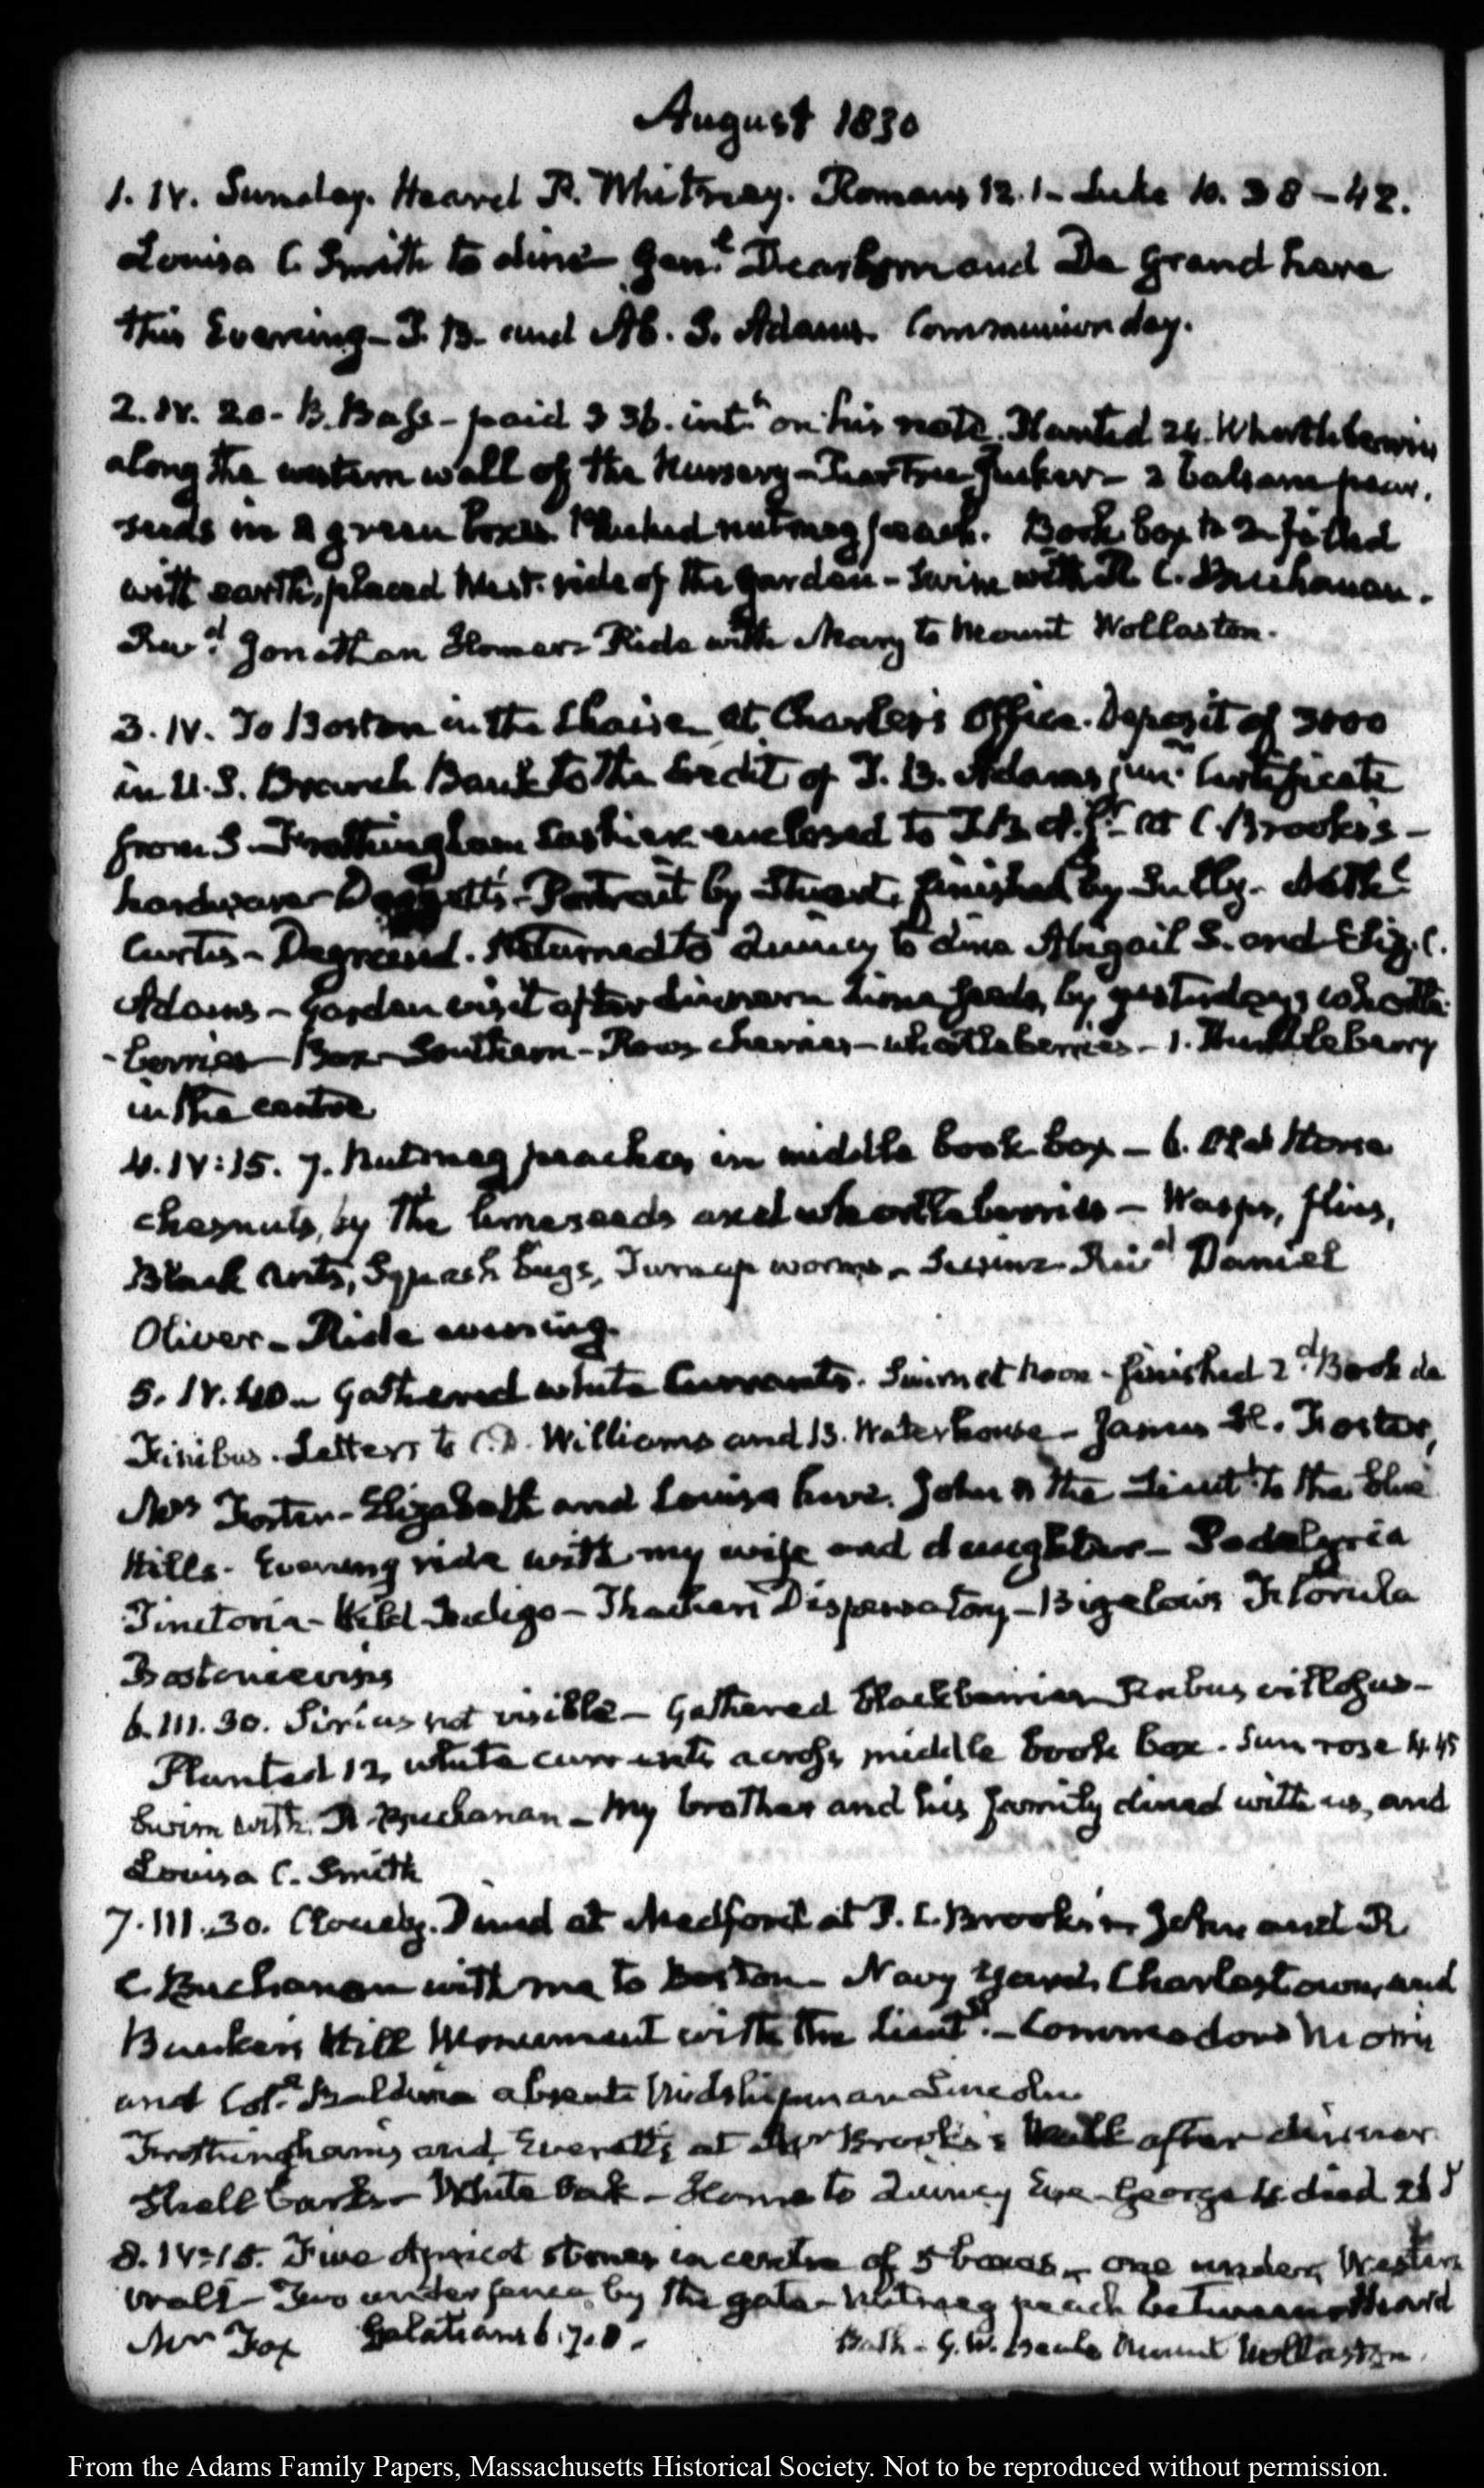 August 1830
1. IV. Sunday. Heard P. Whitney. Romans 12. 1 – Luke 10. 38 – 42.
Louisa C. Smith to dine – Genl. Dearborn and De Grand here
this Evening – T. B. and Ab. S. Adams. Communion day.
2. IV. 20 – B. Bass – paid 3 36. int. on his note. Planted 24. Whortleberries
along the western wall of the Nursery – Pear Tree Sucker – 2 balsam pear,
seeds in 2 green boxes. Plucked nutmeg peach. Book box No. 2 filled
with earth, placed West. side of the garden – Swim with R. C. Buchanan.
Revd. Jonathan Homer – Ride with Mary to Mount Wollaston.
3. IV. To Boston in the Chaise at Charles's Office. Deposit of 3000
in U.S. Branch Bank to the Credit of T. B. Adams junr. Certificate
from S. Frothingham Cashier enclosed to T B A jr. – at C. Brooks's –
hardware – Doggett's – Portrait by Stuart, finished by Sully – Nathl.
Curtis – Degrand. Returned to Quincy to dine Abigail S. and Eliz. C.
Adams – Garden visit after dinner lime seeds, by yesterday's whortle
-berries – Box Southern – Row cherries – whortleberries – 1. Huckleberry
in the centre
4. IV: 15. 7. Nutmeg peaches in middle book box – 6. Old Horse
chesnuts, by the limeseeds and whortleberries – Wasps, flies,
Black Ants, Squash bugs, Turnup worms – Swim – Revd Daniel
Oliver – Ride evening.
5. IV. 40 – Gathered white Currants. Swim at Noon – finished 2d. Book de
Finibus. Letters to C. D. Williams and B. Waterhouse – James H. Foster,
Mrs Foster – Elizabeth and Louisa here. John & the Lieutt. to the blue
Hills – Evening ride with my wife and daughter – Podalyria
Tinctoria – Wild Indigo – Thacher's Dispensatory – Bigelow's Florula
Bostoniensis
6. III. 30. Sirius not visible – Gathered blackberries Rubus villosus –
Planted 12, white currants across middle book box. Sun rose 4. 45
Swim with R. Buchanan – My brother and his family dined with us, and
Louisa C. Smith
7. III. 30. Cloudy. Dined at Medford at P. C. Brooks's – John and R
C. Buchanan with me to Boston – Navy Yard, Charlestown, and
Bunker's Hill Monument with the Lieutt. – Commodore Morris
and Coll. Baldwin absent Midshipman Lincoln
Frothinghams and Everetts at Mr Brooks's Walk after dinner
Shell barks – White Oak – Home to Quincy Eve – George 4 died 26
8. IV: 15. Five Apricot stones in centre of 5 boxes – one under Western
wall – Two under fence by the gate – Nutmeg peach between Heard
Mr Fox Galatians 6. 7. 8. Bath – G. W. Beale Mount Wollaston.
From the Adams Family Papers, Massachusetts Historical Society. Not to be reproduced without permission.